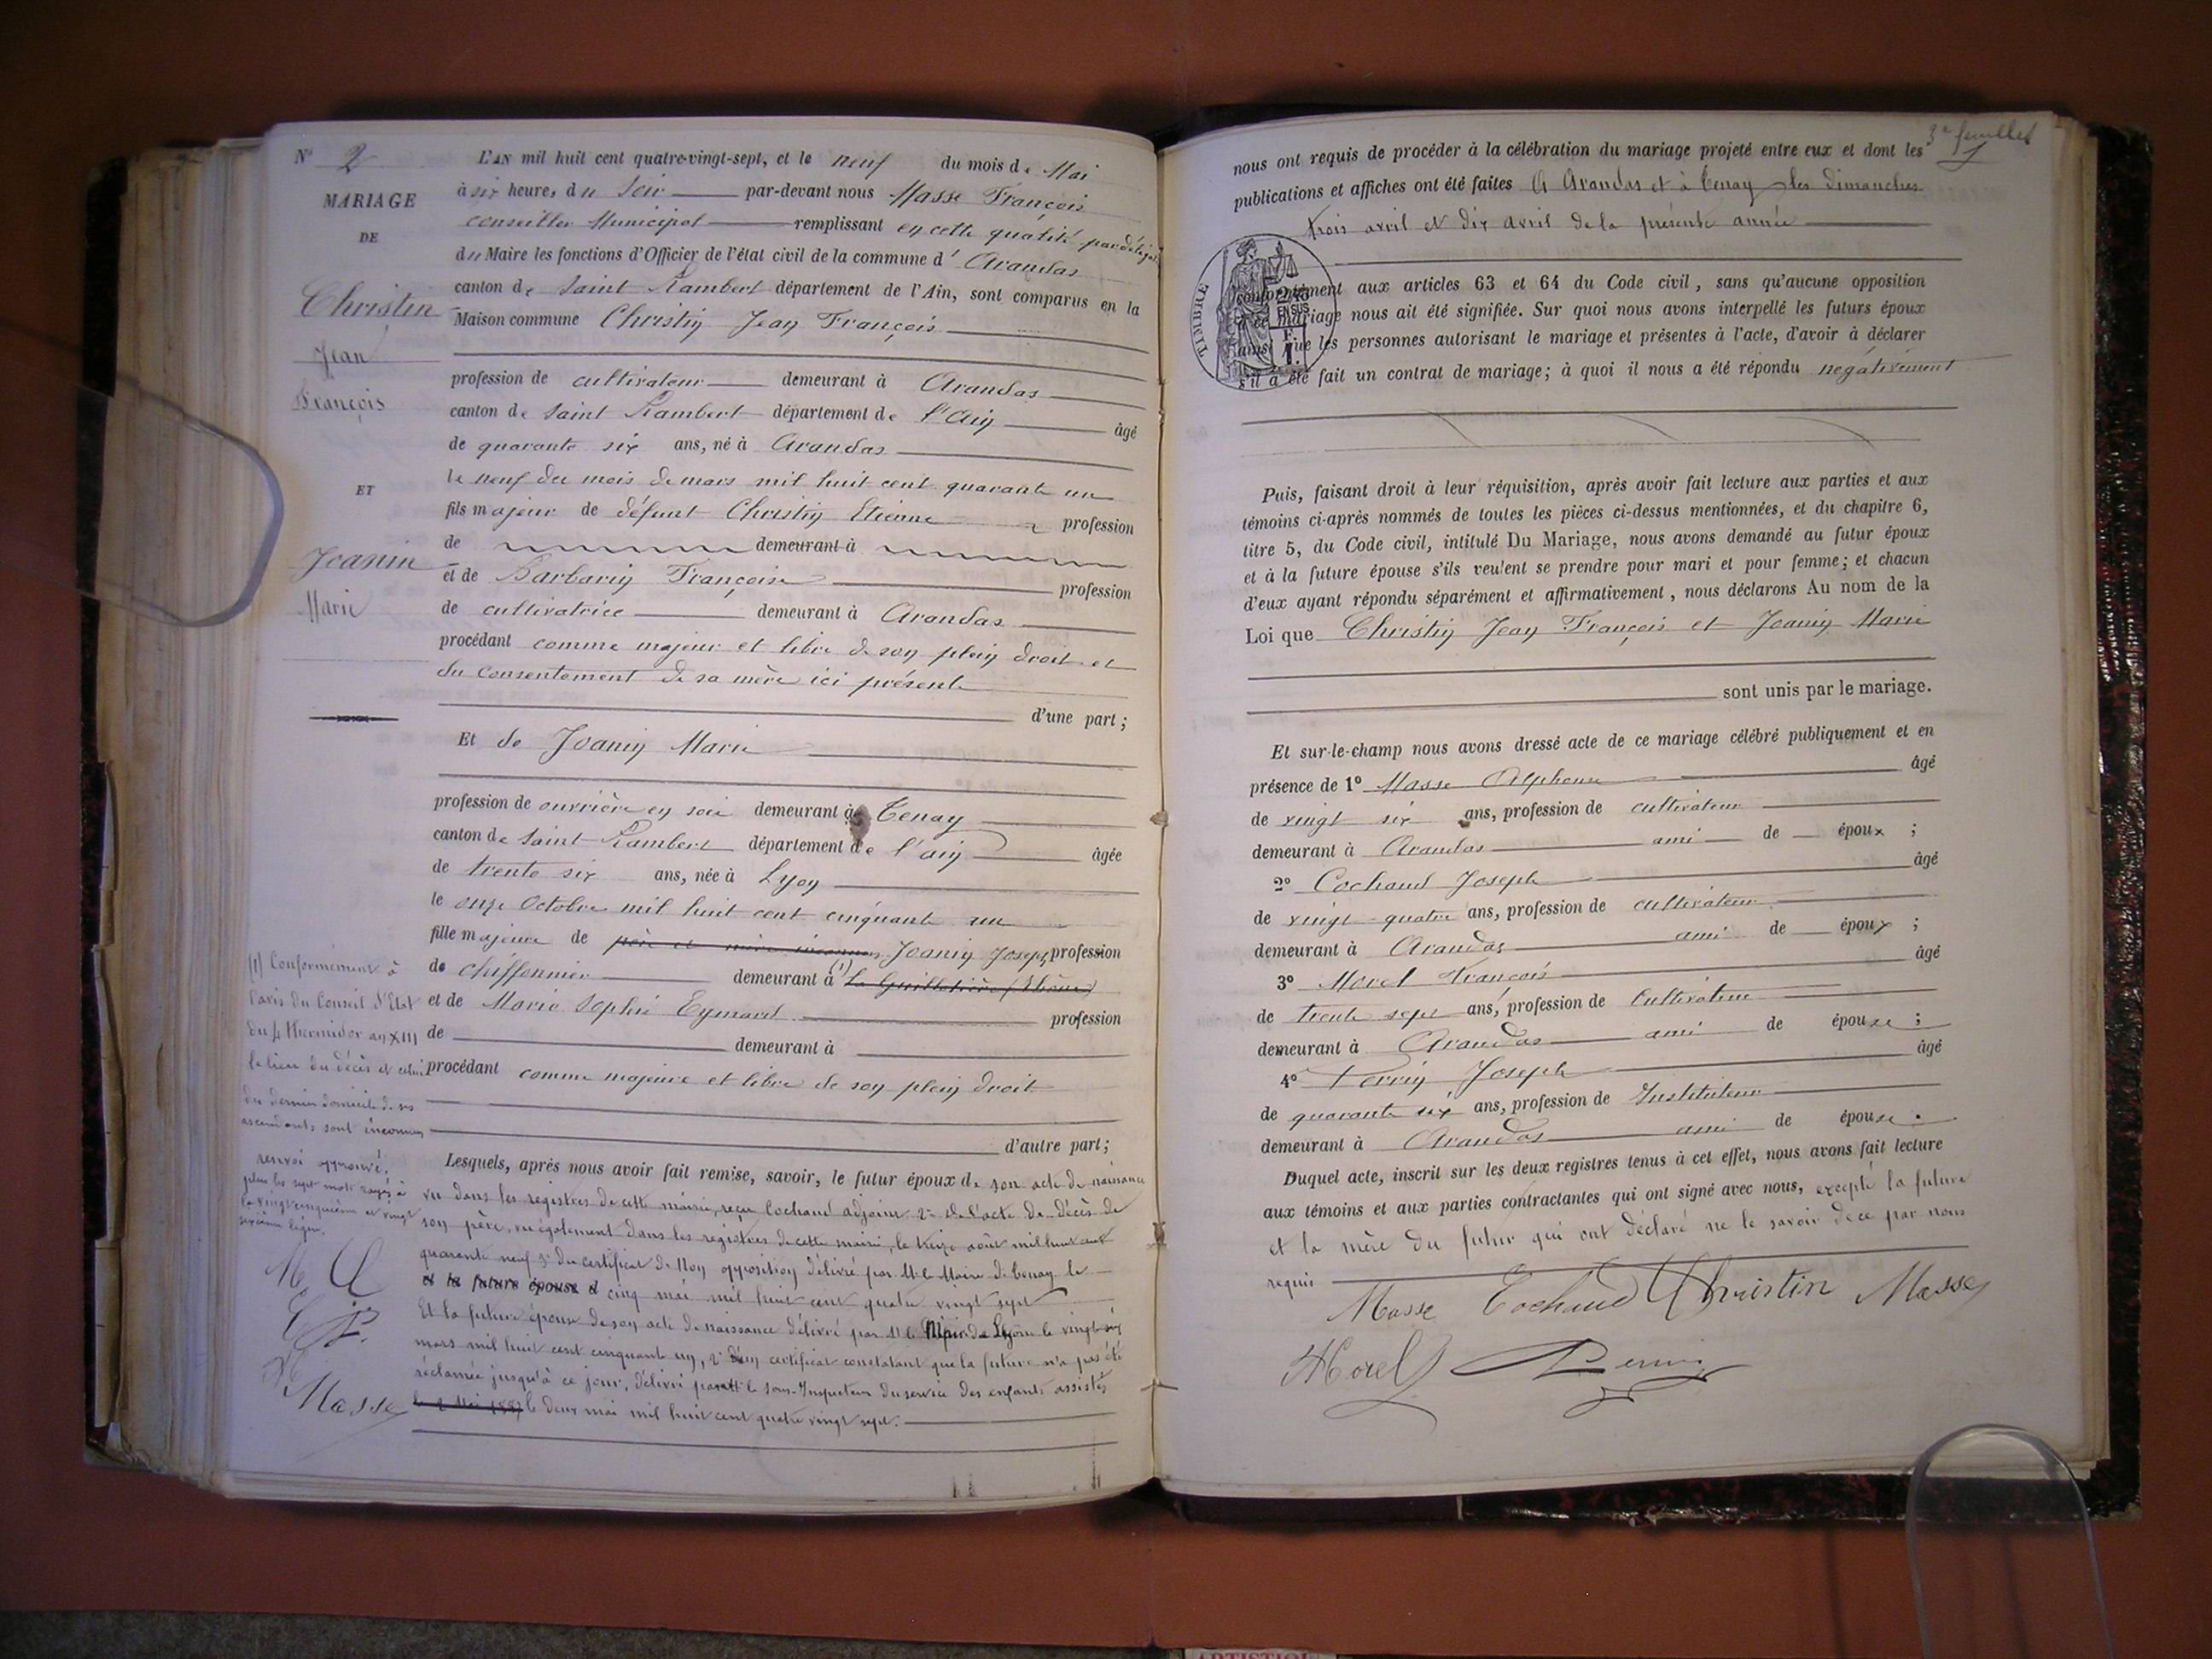 N° 2
MARIAGE
DE
Christin
Jean
François
ET
Joanin
Marie
L'AN mil huit cent quatre-vingt-sept, et le neuf du mois de Mai
à six heures du soir par-devant nous Masse François
conseiller Municipal remplissant en cette qualité par délégation
du Maire les fonctions d'Officier de l'état civil de la commune d' Arandas
canton de Saint Rambert département de l'Ain, sont comparus en la
Maison commune Christin Jean François
profession de cultivateur demeurant à Arandas
canton de Saint Rambert département de l'Ain âgé
de quarante six ans, né à Arandas
le neuf du mois de mars mil huit cent quarante un
fils majeur de défunt Christin Etienne profession
de demeurant à
et de Barbarin Françoise profession
de cultivatrice demeurant à Arandas
procédant comme majeur et libre de son plein droit et
du consentement de sa mère ici présente
d'une part;
Et de Joanin Marie
profession de ouvrière en soie demeurant à Tenay
canton de Saint Rambert département de l'ain âgée
de trente six ans, née à Lyon
le onze Octobre mil huit cent cinquante un
fille majeure de père et mère inconnus Joanin Joseph profession
de chiffonnier demeurant à (1) La Guillotière (Rhône)
et de Marie Sophie Eymard profession
de demeurant à
procédant comme majeure et libre de son plein droit
d'autre part;
(1) Conformément à
l'avis du Conseil d'Etat
du 4 thermidor an XIII
le lieu du décès et celui
du dernier domicile de ses
ascendants sont inconnus
renvoi approuvé,
plus les sept mots rayés à
la vingt cinquième et vingt
sixième ligne.
M C
C P.
M
Masse
Lesquels, après nous avoir fait remise, savoir, le futur époux de son acte de naissance
vu dans les registres de cette mairie, reçu Cochaud adjoint 2° de l'acte de décès de
son père, vu également dans les registres de cette mairie, le treize août mil huit cent
quarante neuf 3° du certificat de Non opposition délivré par M. le Maire de Tenay le
et la future épouse d cinq mai mil huit cent quatre vingt sept
Et la future épouse de son acte de naissance délivré par M. le Maire de Lyon le vingt six
mars mil huit cent cinquante un, 2° d'un certificat constatant que la future n'a pas été
réclamée jusqu'à ce jour, délivré par M. le sous-Inspecteur du service des enfants assistés
le 2 Mai 1887 le deux mai mil huit cent quatre vingt sept.
3e feuillet
nous ont requis de procéder à la célébration du mariage projeté entre eux et dont les
publications et affiches ont été faites A Arandas et à Tenay les dimanches
trois avril et dix avril de la présente année
TIMBRE
conformément aux articles 63 et 64 du Code civil, sans qu'aucune opposition
à ce mariage nous ait été signifiée. Sur quoi nous avons interpellé les futurs époux
ainsi que les personnes autorisant le mariage et présentes à l'acte, d'avoir à déclarer
s'il a été fait un contrat de mariage; à quoi il nous a été répondu négativement
Puis, faisant droit à leur réquisition, après avoir fait lecture aux parties et aux
témoins ci-après nommés de toutes les pièces ci-dessus mentionnées, et du chapitre 6,
titre 5, du Code civil, intitulé Du Mariage, nous avons demandé au futur époux
et à la future épouse s'ils veulent se prendre pour mari et pour femme; et chacun
d'eux ayant répondu séparément et affirmativement, nous déclarons Au nom de la
Loi que Christin Jean François et Joanin Marie
sont unis par le mariage.
Et sur-le-champ nous avons dressé acte de ce mariage célébré publiquement et en
présence de 1° Masse Alphonse âgé
de vingt six ans, profession de cultivateur
demeurant à Arandas ami de époux ;
2° Cochaud Joseph âgé
de vingt-quatre ans, profession de cultivateur
demeurant à Arandas ami de époux ;
3° Morel François âgé
de trente sept ans, profession de Cultivateur
demeurant à Arandas ami de épouse ;
4° Perrin Joseph âgé
de quarante six ans, profession de Instituteur
demeurant à Arandas ami de épouse .
Duquel acte, inscrit sur les deux registres tenus à cet effet, nous avons fait lecture
aux témoins et aux parties contractantes qui ont signé avec nous, excepté la future
et la mère du futur qui ont déclaré ne le savoir de ce par nous
requis
Masse Cochaud Christin Masse
Morel Perrin